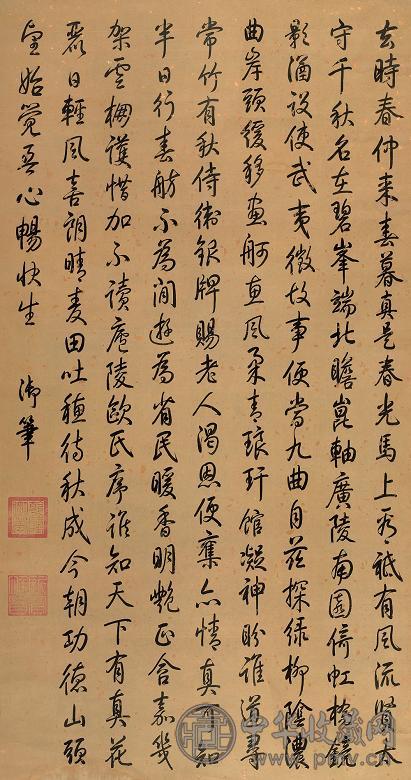 去時春仲来春暮真是春光馬上看祗有風流賢太
守千秋名在碧峯端北瞻崑軸廣陵南園倚虹橋鏡
影涵設使武夷徵故事便當九曲自茲探緑柳陰濃
曲岸頭緩移畫舸直風柔青琅玕館凝神盼誰道尋
常竹有秋侍衛銀牌賜老人渴恩便奮亦情真可知
半日行春舫不為閒遊為省民暖香明艷正含嘉幾
架雲棚護惜加不讀廬陵歐氏序誰知天下有真花
麗日輕風喜朗晴麦田吐穗待秋成今朝功德山頭
望始覺吾心暢快生 御筆
中华收藏网